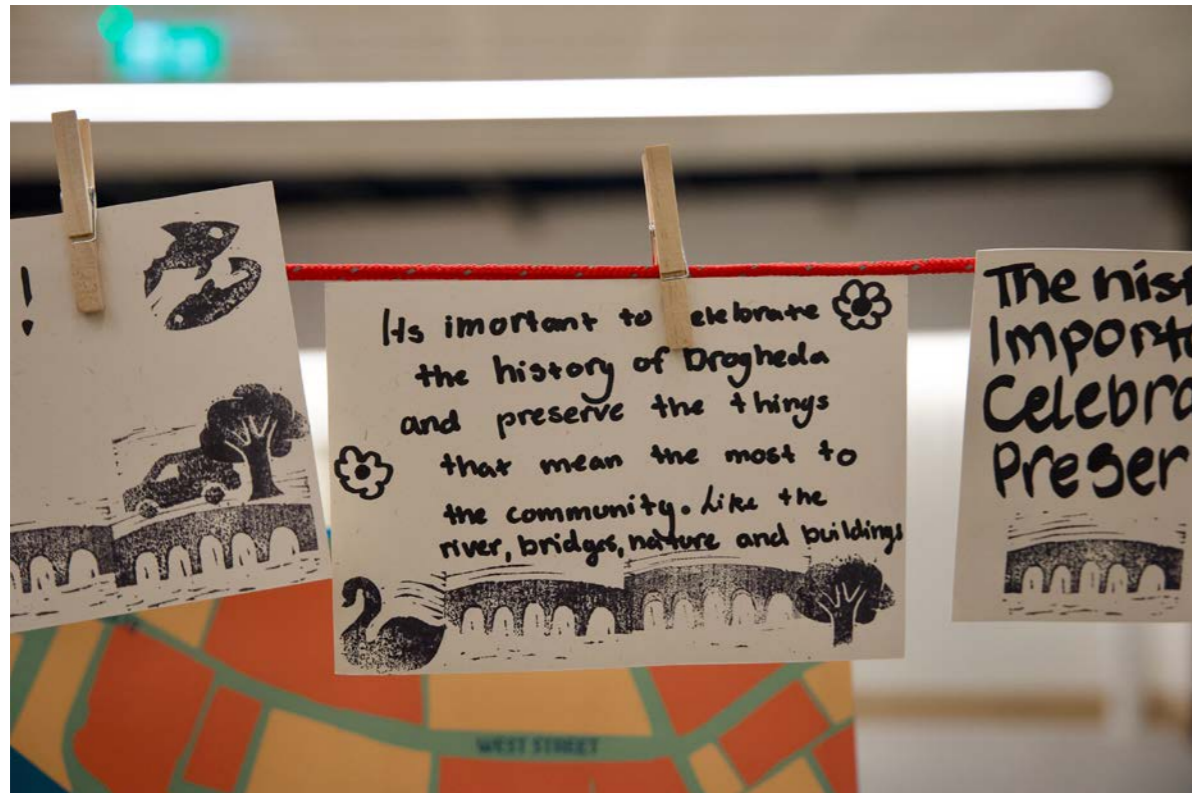 !
Its imortant to celebrate
the history of Drogheda
and preserve the things
that mean the most to
the community. Like the
river, bridges, nature and buildings
The
Importa
Celebra
Preser
WEST STREET